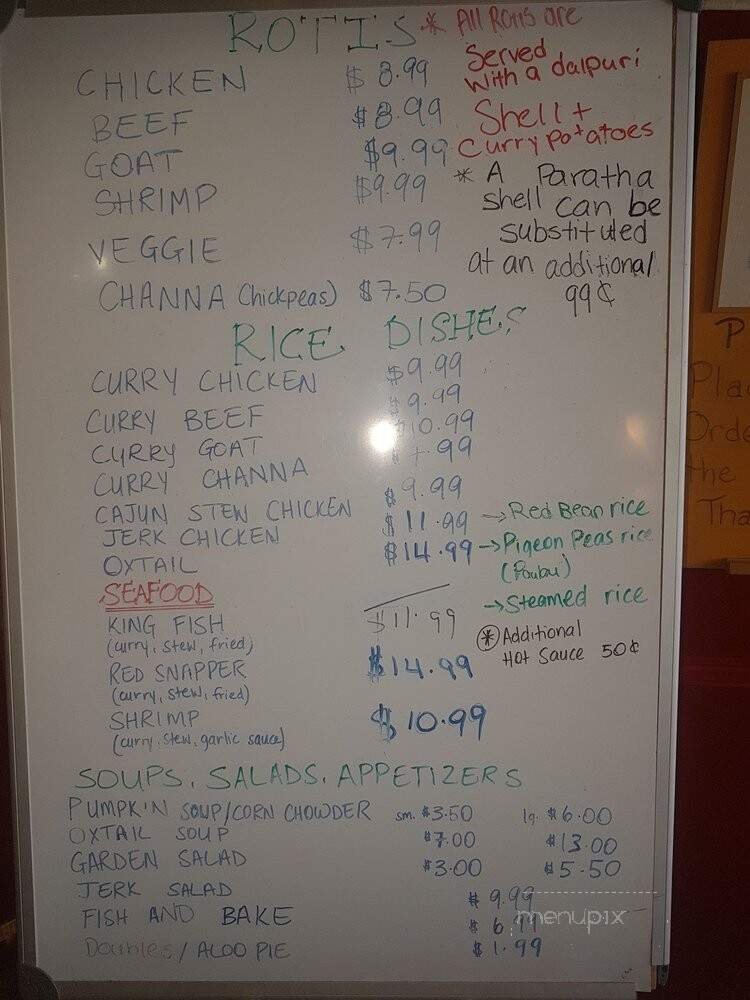 ROTIS * All Rotis are
Served
with a dalpuri
Shell +
Curry potatoes
CHICKEN $8.99
BEEF $8.99
GOAT $9.99
SHRIMP $9.99
VEGGIE $7.99
CHANNA (Chickpeas) $7.50
* A Paratha
shell can be
substituted
at an additional
99¢
RICE DISHES
CURRY CHICKEN $9.99
CURRY BEEF $9.99
CURRY GOAT $10.99
CURRY CHANNA .99
CAJUN STEW CHICKEN $9.99
JERK CHICKEN $11.99
OXTAIL $14.99
→ Red Bean rice
→ Pigeon Peas rice
→ Steamed rice
* Additional
Hot Sauce 50¢
SEAFOOD
KING FISH $11.99
(curry, stew, fried)
RED SNAPPER $14.99
(curry, stew, fried)
SHRIMP $10.99
(curry, stew, garlic sauce)
SOUPS, SALADS, APPETIZERS
PUMPKIN SOUP/CORN CHOWDER sm. $3.50 lg. $6.00
OXTAIL SOUP $7.00 $13.00
GARDEN SALAD $3.00 $5.50
JERK SALAD $9.99
FISH AND BAKE $6.99
Doubles / ALOO PIE $1.99
menupix
P
Pla
Orde
the
Tha